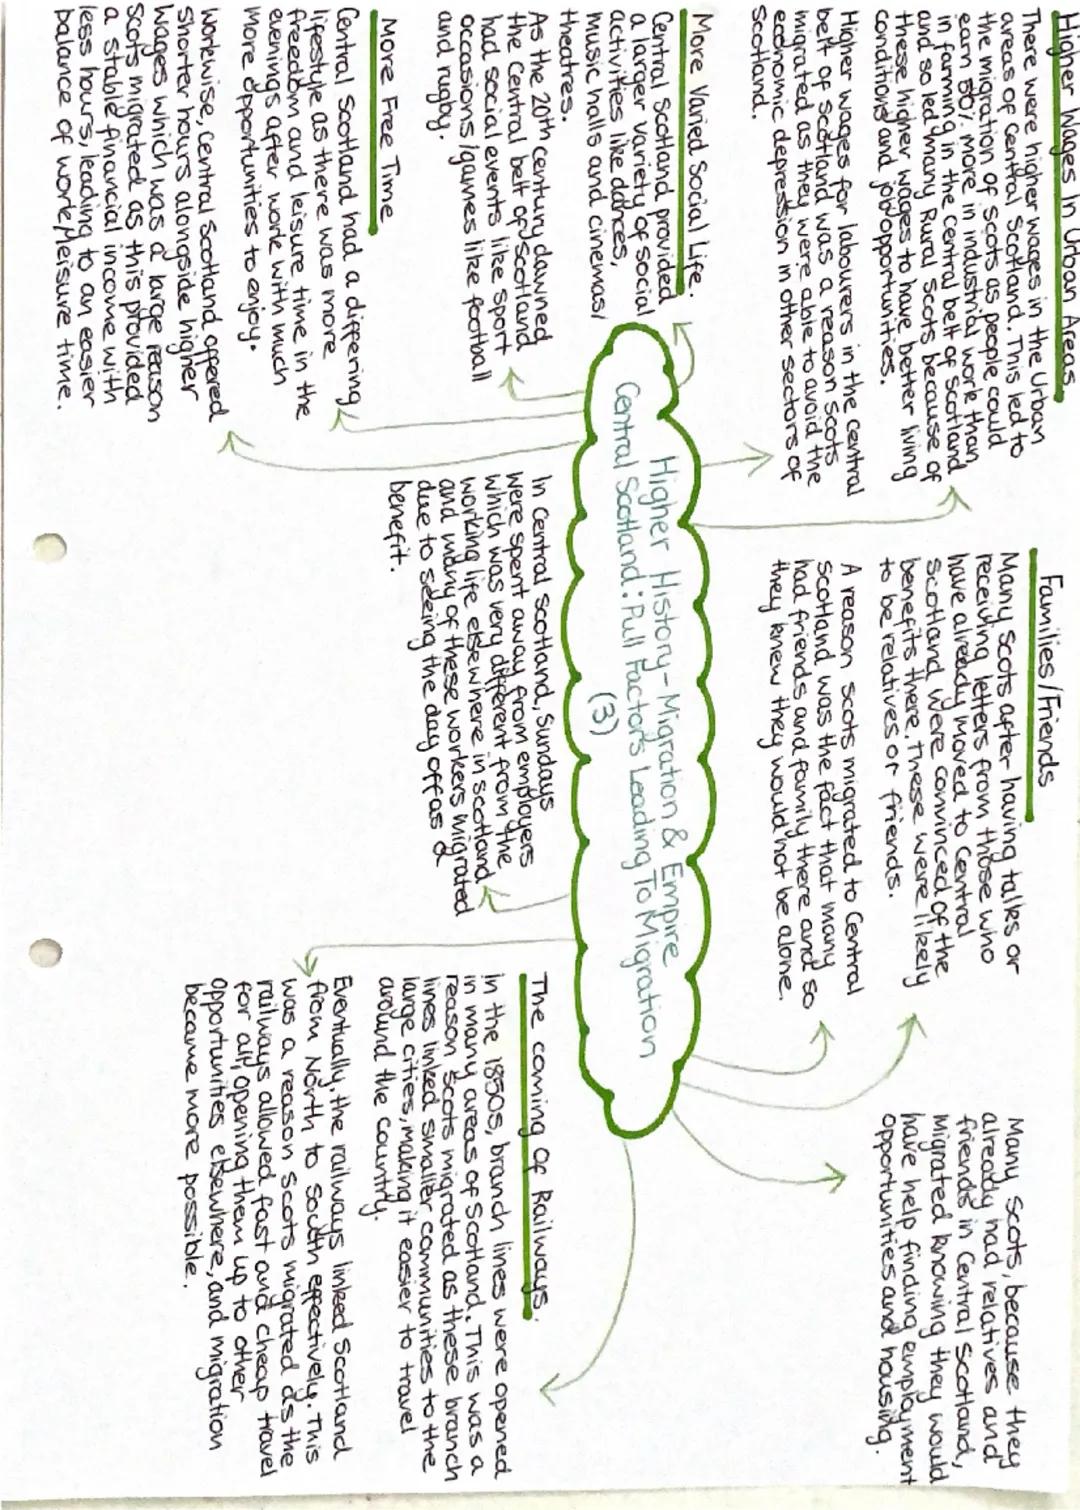 Higher Wages In Urban Areas
There were higher wages in the Urban
areas of Central Scotland. This led to
the migration of Scots as people could
earn 50% more in industrial work than
in farming in the Central belt of Scotland
and so led many Rural Scots because of
these higher wages to have better living
conditions and job opportunities.
Higher wages for labourers in the central
belt of Scotland was a reason Scots
migrated as they were able to avoid the
economic depression in other sectors of
Scotland.
Families/Friends
Many Scots after having talks or
receiving letters from those who
have already moved to Central
Scotland were convinced of the
benefits there. These were likely
to be relatives or friends.
A reason Scots migrated to Central
Scotland was the fact that many
had friends and family there and so
they knew they would not be alone.
Many Scots, because they
already had relatives and
friends in Central Scotland,
migrated knowing they would
have help finding employment
opportunities and housing.
Higher History - Migration & Empire
Central Scotland: Pull Factors Leading To Migration
(3)
More Varied Social Life.
Central Scotland provided
a larger variety of social
activities like dances,
music halls and cinemas/
theatres.
As the 20th century dawned
the Central belt of Scotland
had social events like sport
occasions/games like football
and rugby.
More Free Time
Central Scotland had a differing
lifestyle as there was more
freedom and leisure time in the
evenings after work with much
more opportunities to enjoy.
Workwise, Central Scotland offered
shorter hours alongside higher
wages which was a large reason
Scots migrated as this provided
a stable financial income with
less hours, leading to an easier
balance of work/leisure time.
In Central Scotland, Sundays
were spent away from employers
which was very different from the
working life elsewhere in Scotland
and many of these workers migrated
due to seeing the day off as a
benefit.
The coming Of Railways.
In the 1850s, branch lines were opened
in many areas of Scotland. This was a
reason Scots migrated as these branch
lines linked smaller communities to the
large cities, making it easier to travel
around the country.
Eventually, the railways linked Scotland
from North to South effectively. This
was a reason Scots migrated as the
railways allowed fast and cheap travel
for all, opening them up to other
opportunities elsewhere, and migration
became more possible.